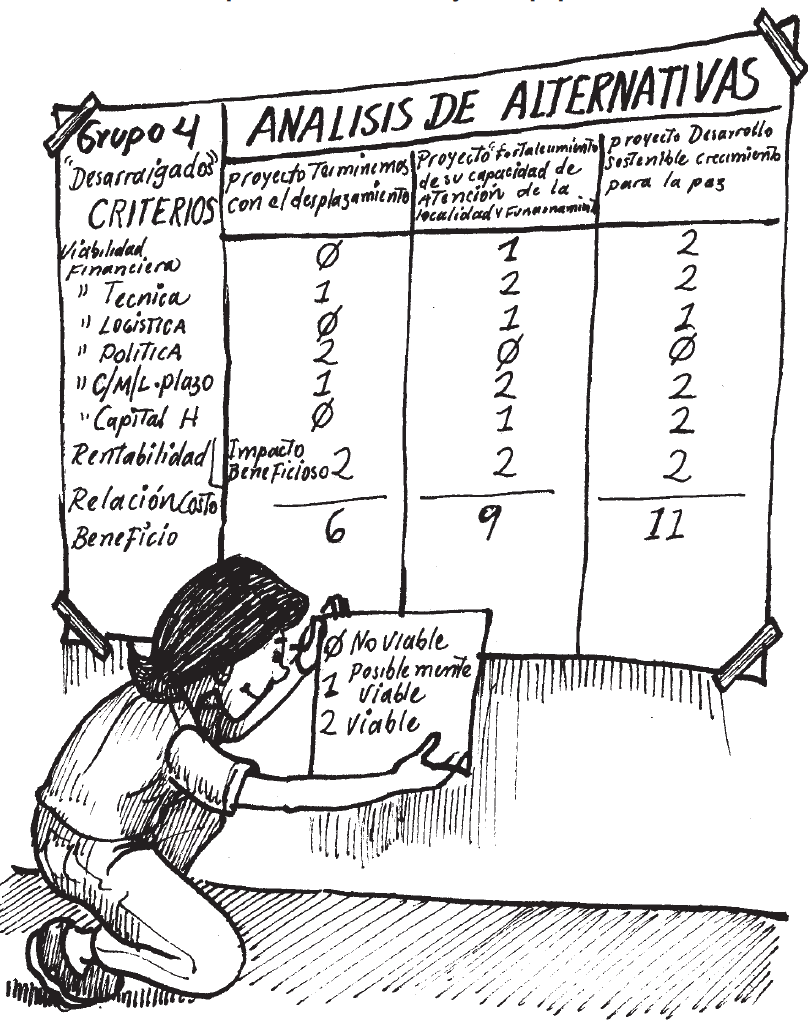 Grupo 4
"Desarraigados"
CRITERIOS
ANALISIS DE ALTERNATIVAS
proyecto Terminemos
con el desplazamiento
Proyecto "fortalecimiento
de su capacidad de
Atención de la
localidad y Funcionamiento
proyecto Desarrollo
sostenible crecimiento
para la paz
Viabilidad
Financiera Ø 1 2
" Tecnica 1 2 2
" LOGISTICA Ø 1 1
" POLITICA 2 Ø Ø
" C/M/L.plazo 1 2 2
" Capital H Ø 1 2
Rentabilidad Impacto
Beneficioso 2 2 2
Relación Costo
Beneficio 6 9 11
Ø No viable
1 Posiblemente
viable
2 viable